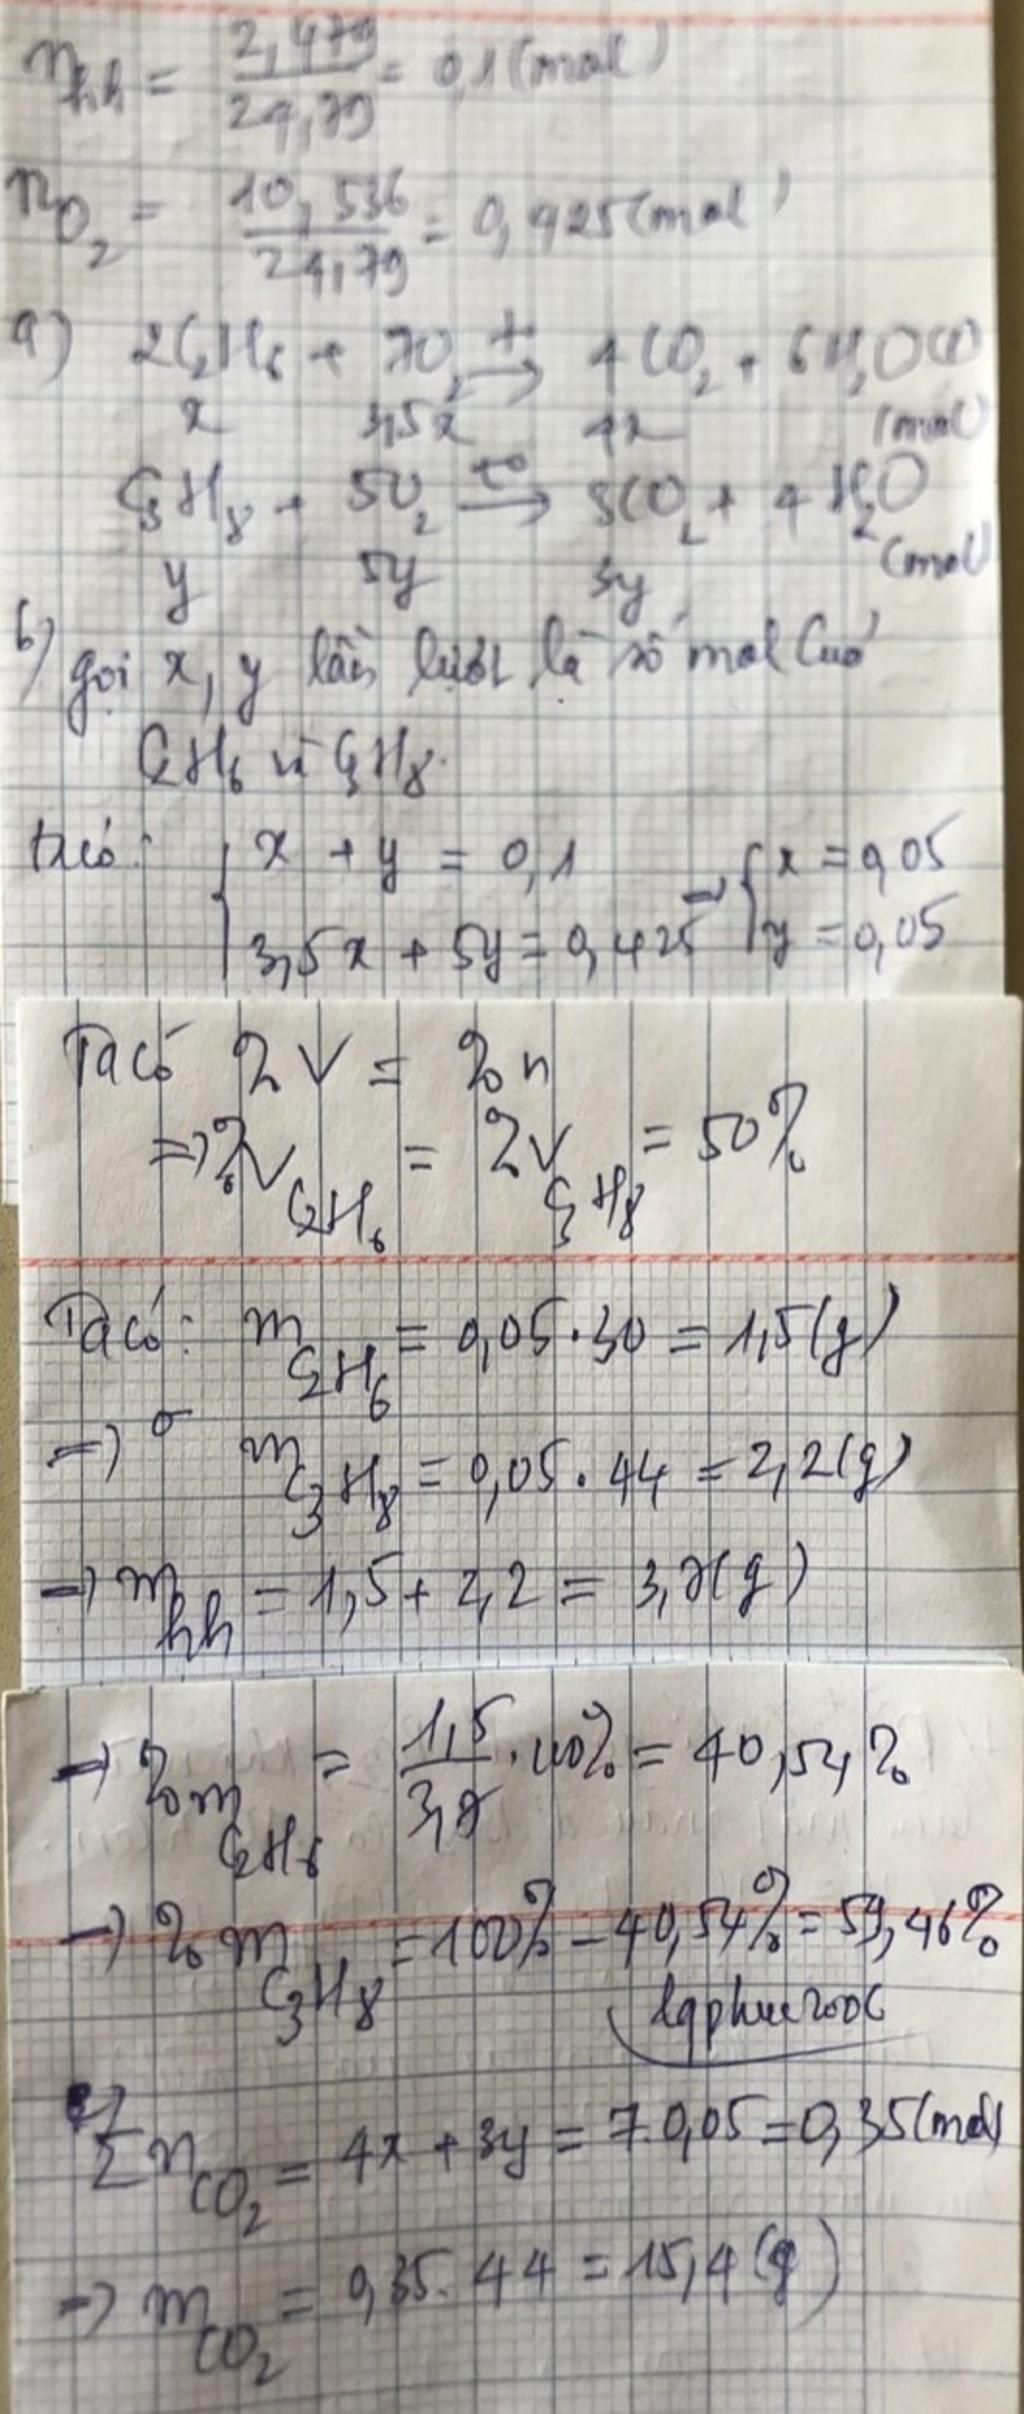 n_hh = 2,479/24,79 = 0,1 (mol)
n_O2 = 10,536/24,79 = 0,425 (mol)
a) 2C2H6 + 7O2 →(t°) 4CO2 + 6H2O (1)
x 3,5x 4x (mol)
C3H8 + 5O2 →(t°) 3CO2 + 4H2O
y 5y 3y (mol)
b) gọi x, y lần lượt là số mol của
C2H6 và C3H8.
ta có: { x + y = 0,1 → { x = 0,05
3,5x + 5y = 0,425 y = 0,05
Ta có %V = %n
=> %V_C2H6 = %V_C3H8 = 50%
Ta có: m_C2H6 = 0,05.30 = 1,5 (g)
=> m_C3H8 = 0,05.44 = 2,2 (g)
→ m_hh = 1,5 + 2,2 = 3,7 (g)
→ %m_C2H6 = 1,5/3,7 .100% = 40,54%
→ %m_C3H8 = 100% - 40,54% = 59,46%
lqphuc2006
Σn_CO2 = 4x + 3y = 7.0,05 = 0,35 (mol)
→ m_CO2 = 0,35.44 = 15,4 (g)